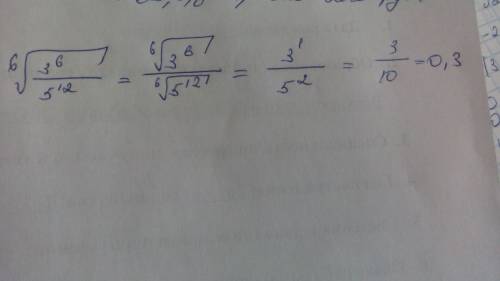 ⁶√(3⁶/5¹²) = ⁶√(3⁶)/⁶√(5¹²) = 3¹/5² = 3/10 = 0,3